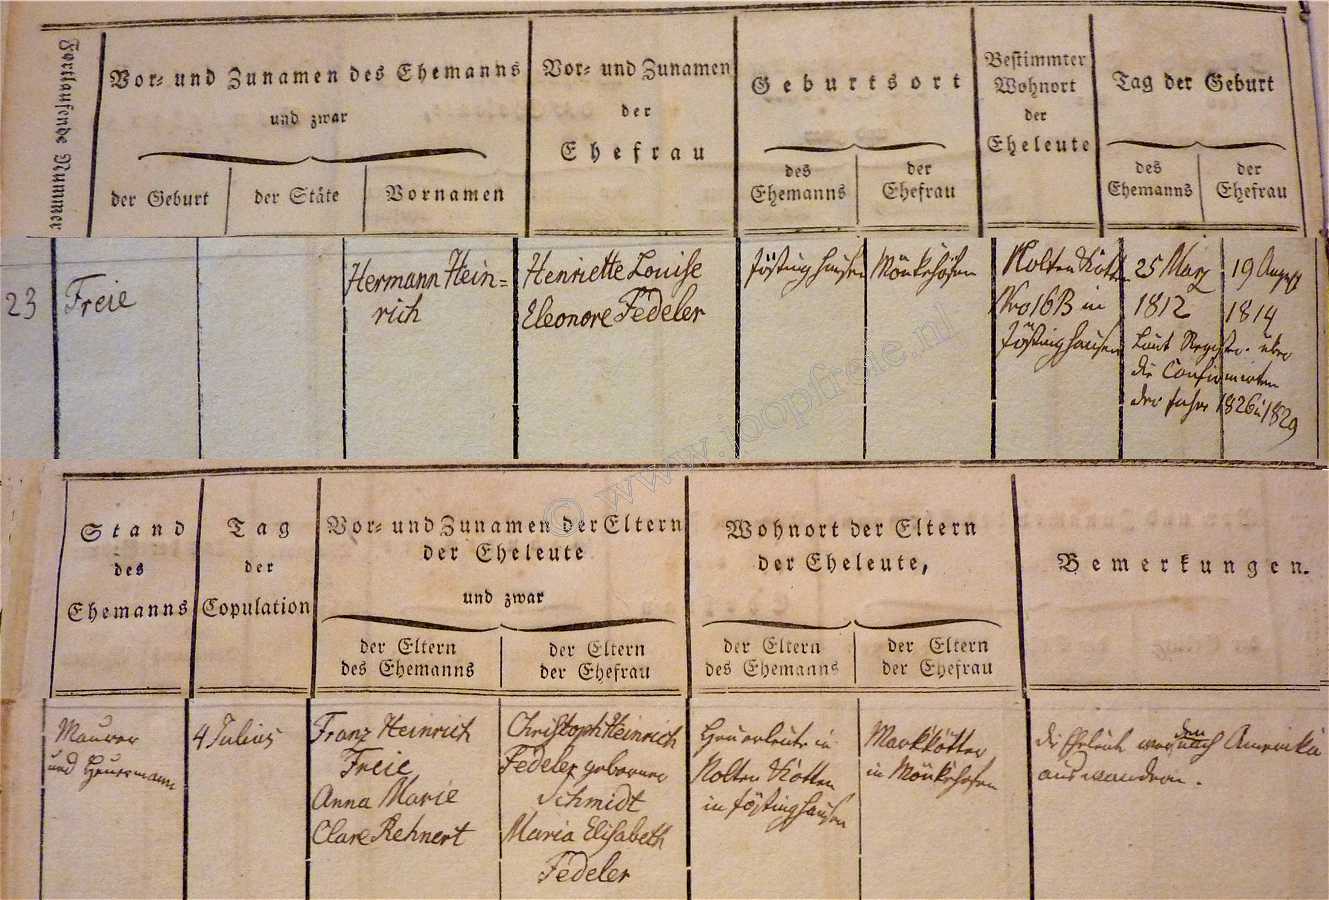 Fortlaufende Nummer
Vor- und Zunamen des Ehemanns
und zwar
der Geburt
der Stäte
Vornamen
Vor- und Zunamen
der
Ehefrau
Geburtsort
des
Ehemanns
der
Ehefrau
Bestimmter
Wohnort
der
Eheleute
Tag der Geburt
des
Ehemanns
der
Ehefrau
23
Freie
Hermann Hein-
rich
Henriette Louise
Eleonore Fedeler
Jöstinghausen
Mönkshöfen
Nolten Kotten
Nro 16B in
Jöstinghausen
25 März
1812
19 August
1814
Laut Register über
die Confirmirten
der Jahre 1826 u 1829
© www.joopfreie.nl
Stand
des
Ehemanns
Tag
der
Copulation
Vor- und Zunamen der Eltern
der Eheleute
und zwar
der Eltern
des Ehemanns
der Eltern
der Ehefrau
Wohnort der Eltern
der Eheleute,
der Eltern
des Ehemanns
der Eltern
der Ehefrau
Bemerkungen.
Maurer
und Heuermann
4 Julius
Franz Heinrich
Freie
Anna Marie
Clare Rehnert
Christoph Heinrich
Fedeler geborner
Schmidt
Maria Elisabeth
Fedeler
Heuerleute in
Nolten Kotten
in Jöstinghausen
Markkötter
in Mönkshöfen
die Eheleute werden nach Amerika
auswandern.